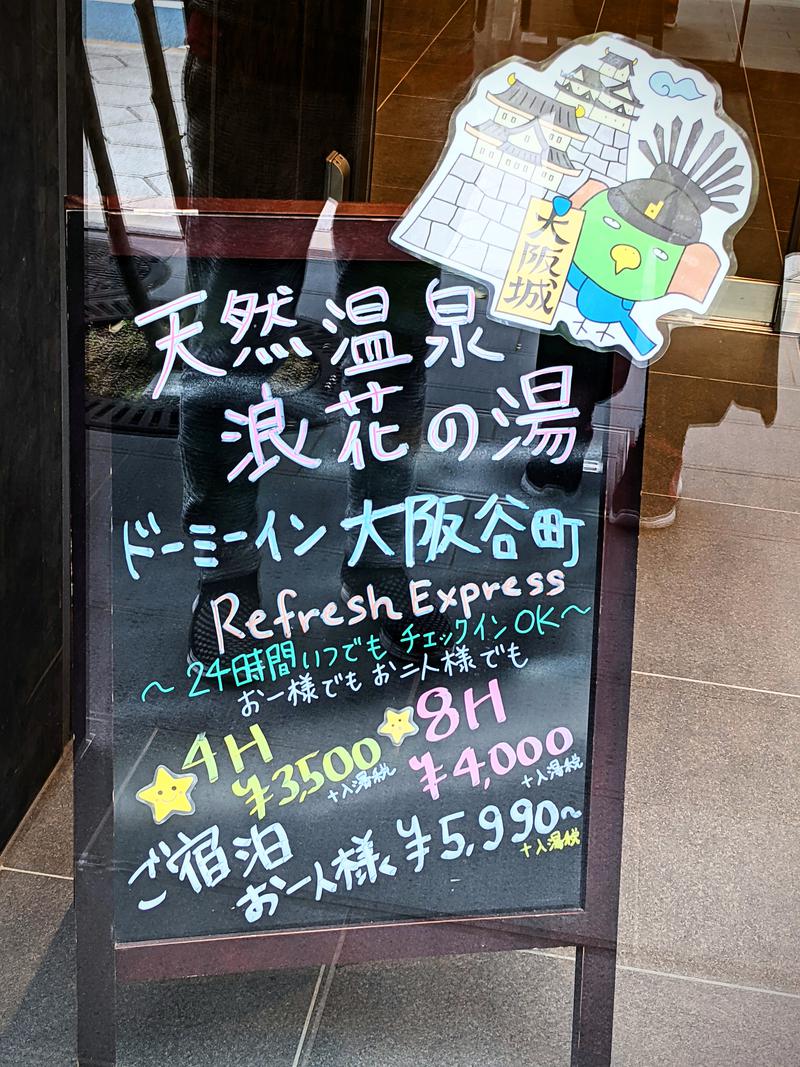 大阪城
天然温泉
浪花の湯
ドーミーイン大阪谷町
Refresh Express
～24時間いつでもチェックインOK～
お一様でもお二人様でも
4H
¥3,500
+入湯税
8H
¥4,000
+入湯税
ご宿泊
お一人様 ¥5,990～
+入湯税